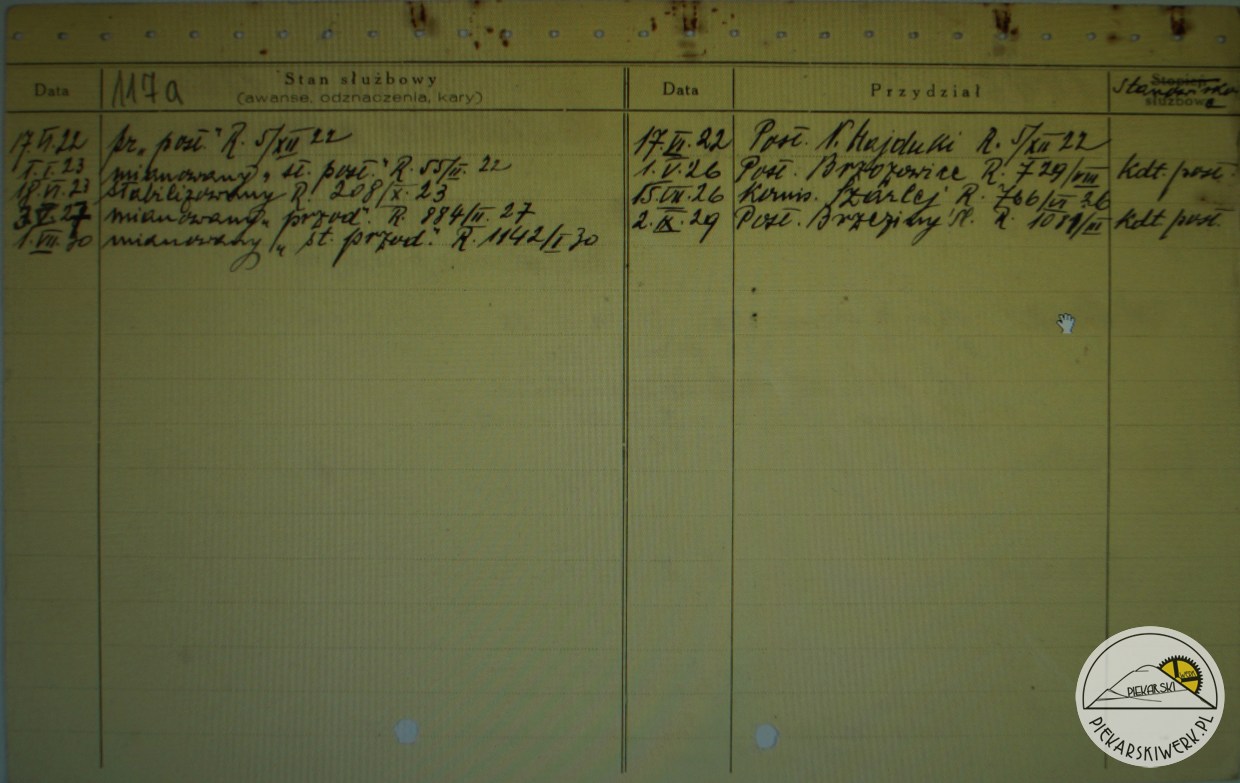 Data 117a Stan służbowy Data Przydział Stopień Stanowisko
(awanse, odznaczenia, kary) służbowe
17.VI.22 pr. „post." R. 5/XII 22 17.VI.22 Post. N. Hajduki R. 5/XII 22
1.I.23 mianowany „st. post." R. 55/II. 22 1.V.26 Post. Brzozowice R. 729/VIII kdt post.
18.VI.23 stabilizowany R. 208/X. 23 15.VII.26 Komis. Szarlej R. 766/VII 26
27 mianowany „przod". R. 884/II. 27 2.IX.29 Post. Brzeziny R. kdt post.
1.VII.30 mianowany „st. przod." R. 1142/I 30
PIEKARSKI WERK
PIEKARSKIWERK.PL